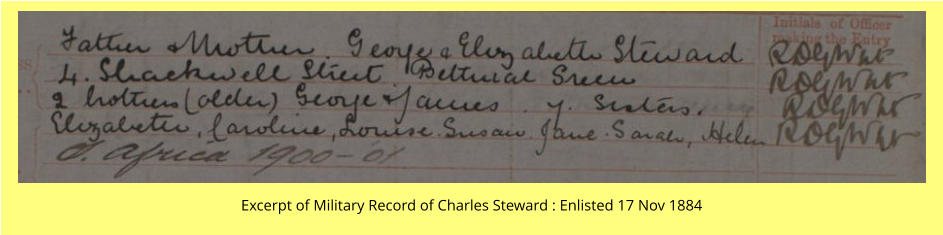 Initials of Officer
making the Entry
Father & Mother. George & Elizabeth Steward
4. Shackwell Street Bethnal Green
2 brothers (older) George & James . 7. Sisters.
Elizabeth, Caroline, Louise. Susan. Jane. Sarah, Helen
S. Africa 1900-01
Excerpt of Military Record of Charles Steward : Enlisted 17 Nov 1884